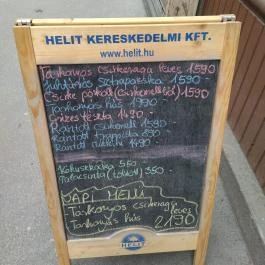 HELIT KERESKEDELMI KFT.
www.helit.hu
Tárkonyos csirkeragu leves 1590
Juhtúrós sztrapacska 1590
Csirke pörkölt (csirkemellből) 1590
Tárkonyos hús 1990
Grízes tészta 1490
Rántott csirkemell 1590
Rántott
Rántott
Kókuszkocka 550
Palacsinta 350
NAPI MENÜ
Tárkonyos csirkeragu leves
Tárkonyos hús 2190
HELIT